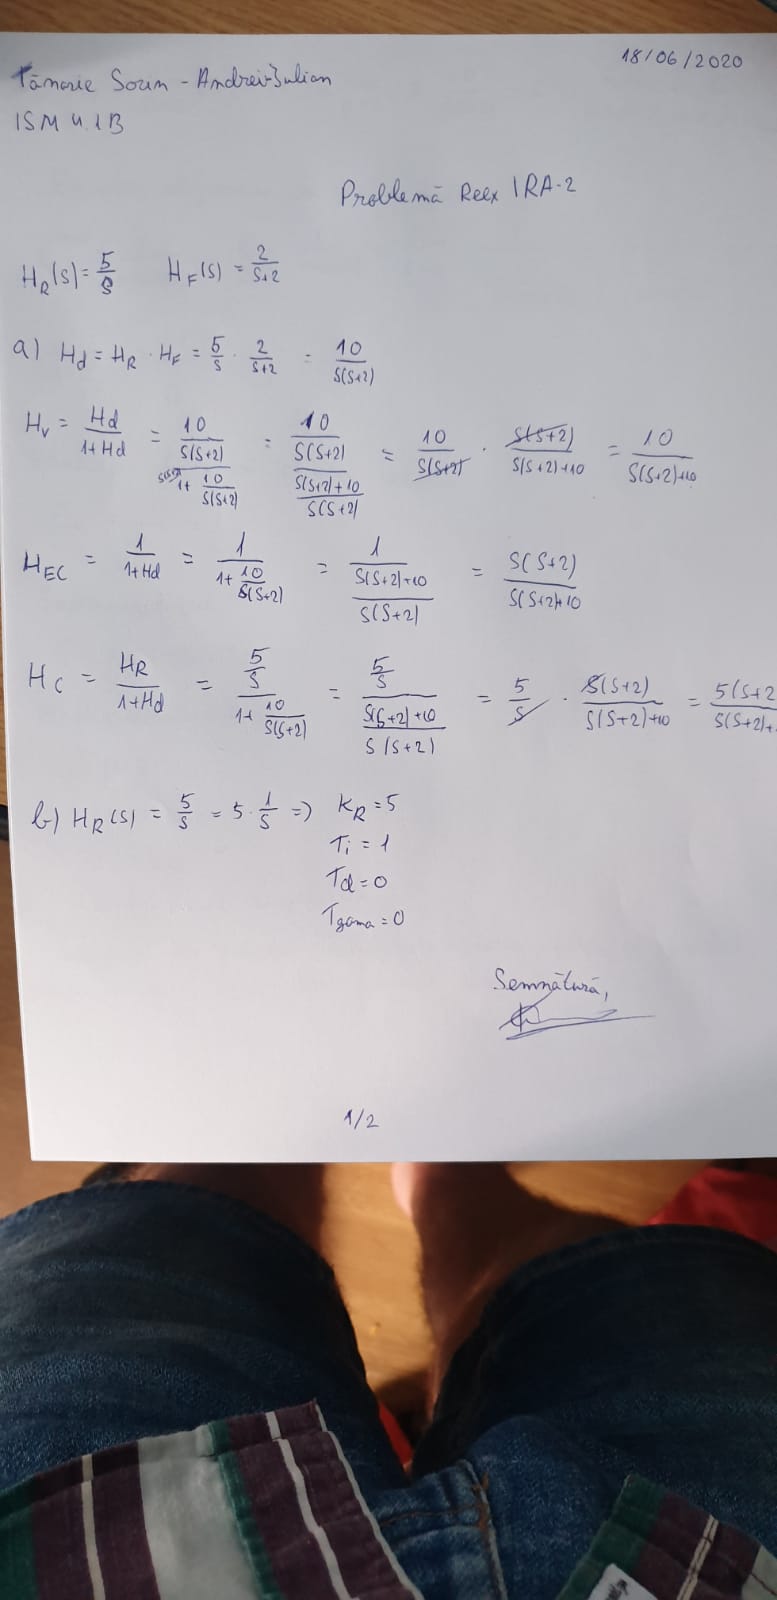 18/06/2020
Tănasie Sorin - Andrei-Iulian
ISM 4.1B
Problemă Reex IRA-2
H_R(s) = 5/s   H_F(s) = 2/(s+2)
a) H_d = H_R · H_F = 5/s · 2/(s+2) = 10/(s(s+2))
H_v = Hd/(1+Hd) = (10/(s(s+2)))/(1+10/(s(s+2))) = (10/(s(s+2)))/((s(s+2)+10)/(s(s+2))) = 10/(s(s+2)) · s(s+2)/(s(s+2)+10) = 10/(s(s+2)+10)
H_EC = 1/(1+Hd) = 1/(1+10/(s(s+2))) = 1/((s(s+2)+10)/(s(s+2))) = s(s+2)/(s(s+2)+10)
H_C = H_R/(1+Hd) = (5/s)/(1+10/(s(s+2))) = (5/s)/((s(s+2)+10)/(s(s+2))) = 5/s · s(s+2)/(s(s+2)+10) = 5(s+2/s(s+2)+
b) H_R(s) = 5/s = 5·1/s => K_R = 5
Ti = 1
Td = 0
Tgama = 0
Semnătură,
1/2